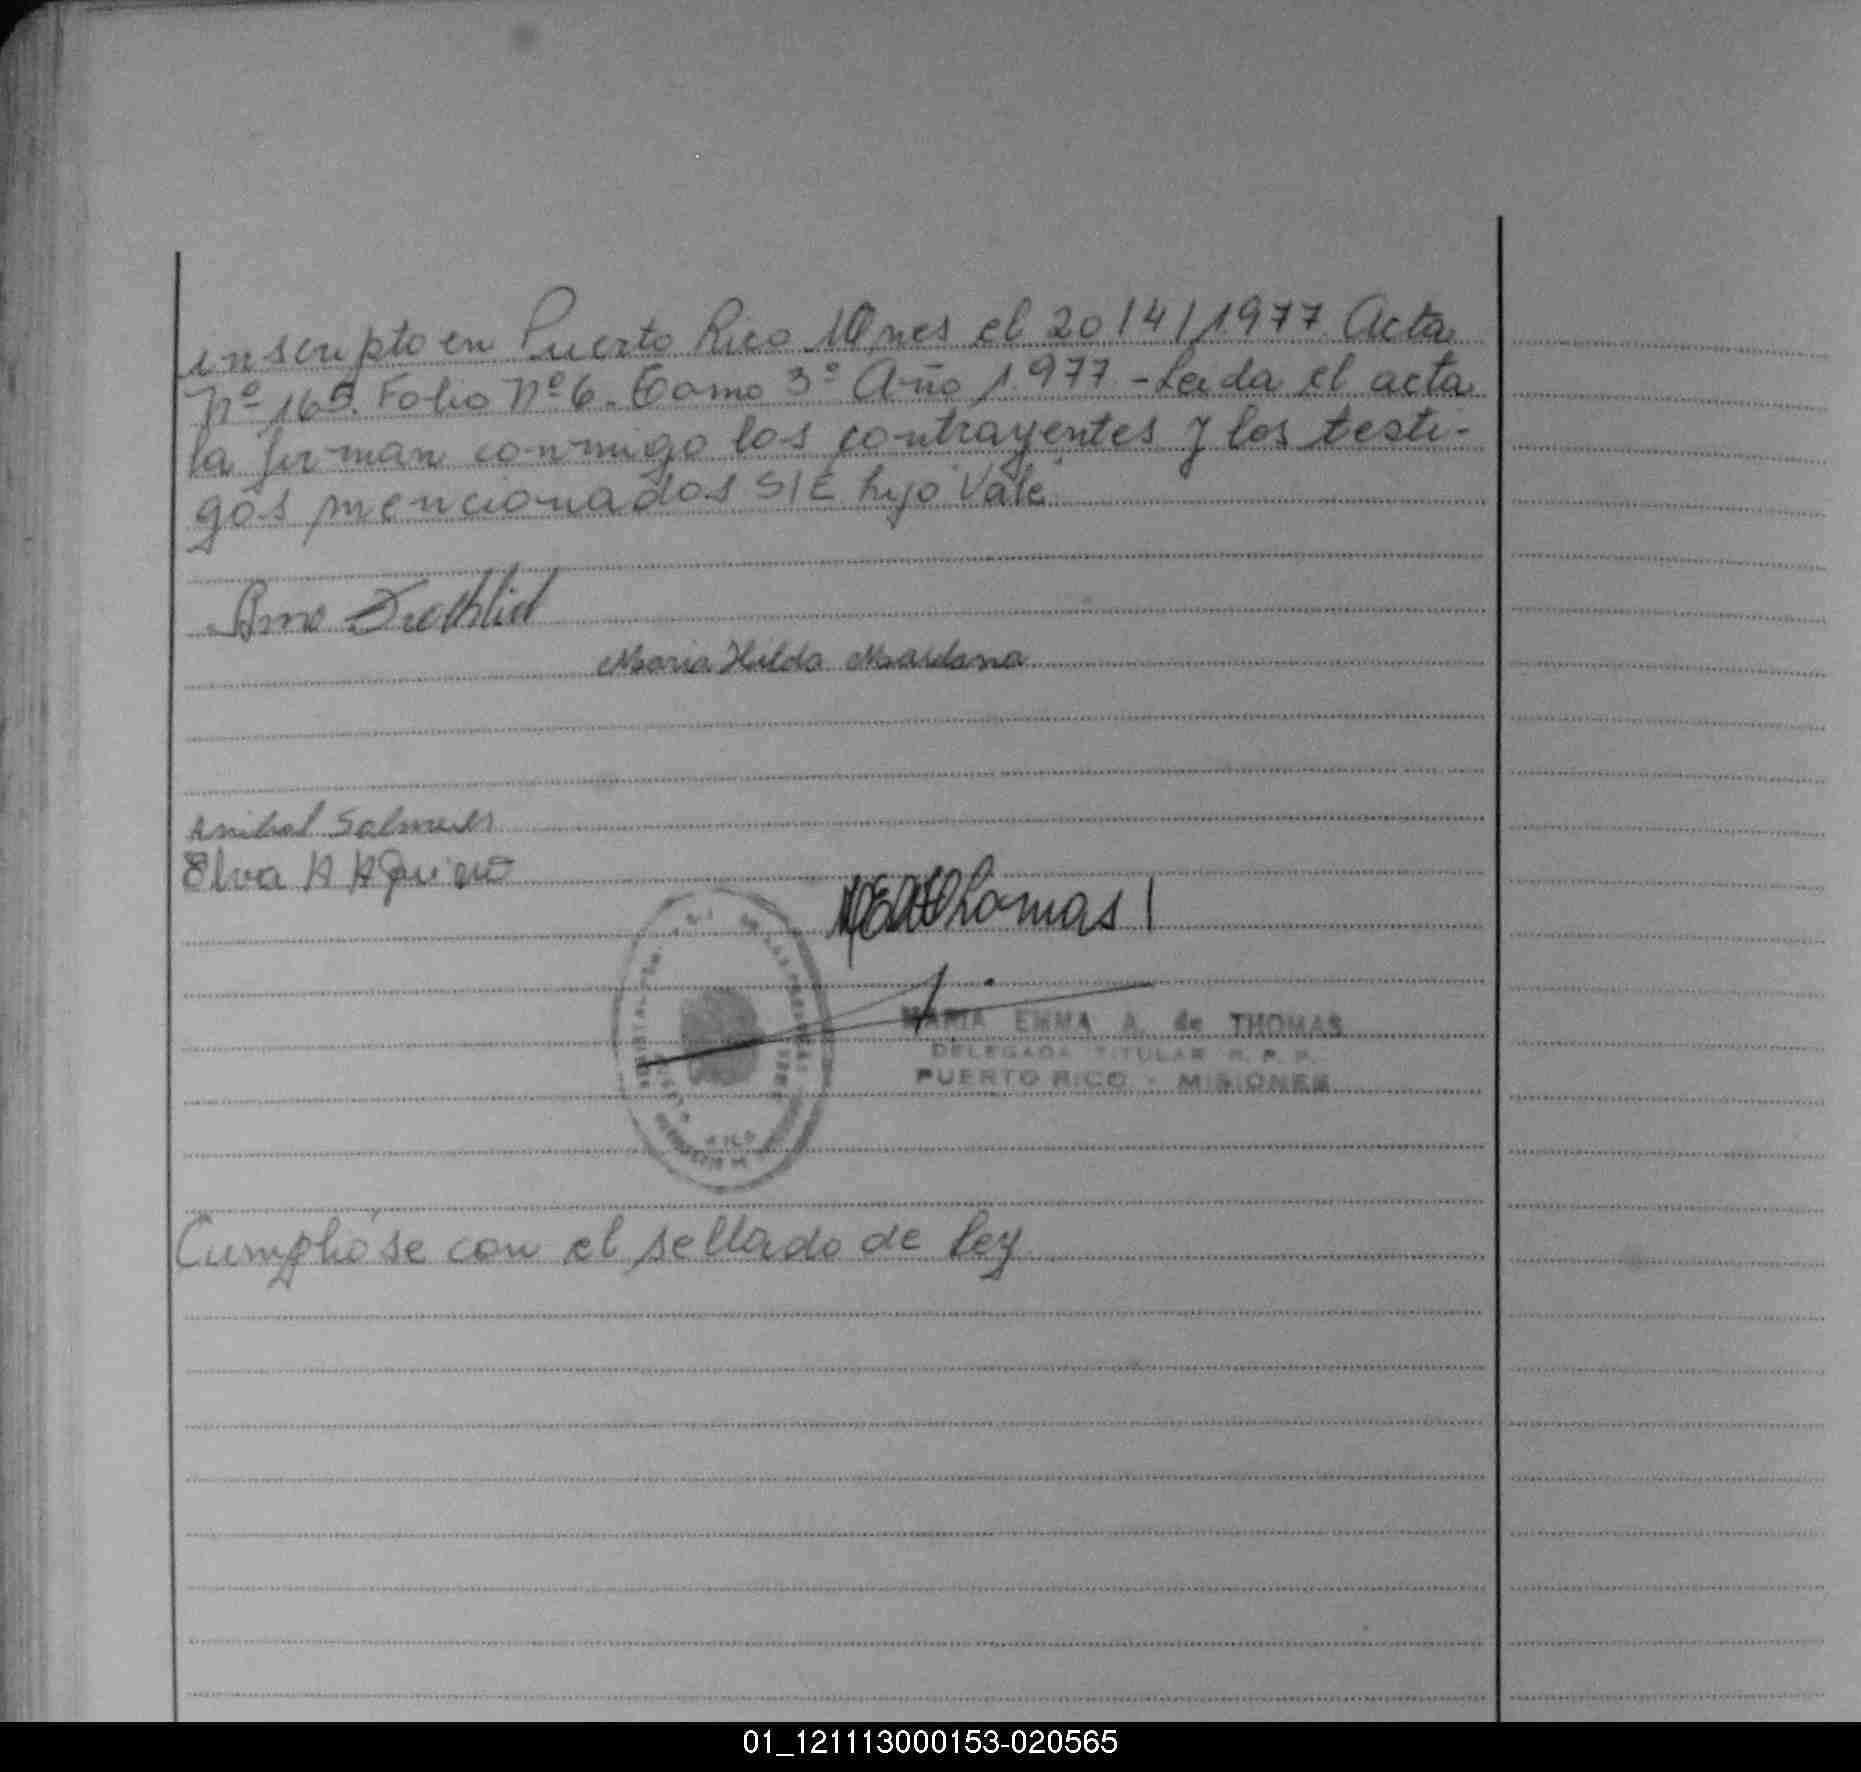 inscripto en Puerto Rico Mnes el 20/4/1977. Acta
Nº 165. Folio Nº 6. Tomo 3º Año 1977 - Leida el acta
la firman conmigo los contrayentes y los testi-
gos mencionados S/E hijo Vale
Arno
Maria Hilda Maidana
Anibal
Elva A Aguero
MEA Thomas
MARIA EMMA A. de THOMAS
DELEGADA TITULAR R. P. P.
PUERTO RICO - MISIONES
Cumplióse con el sellado de ley
01_121113000153-020565